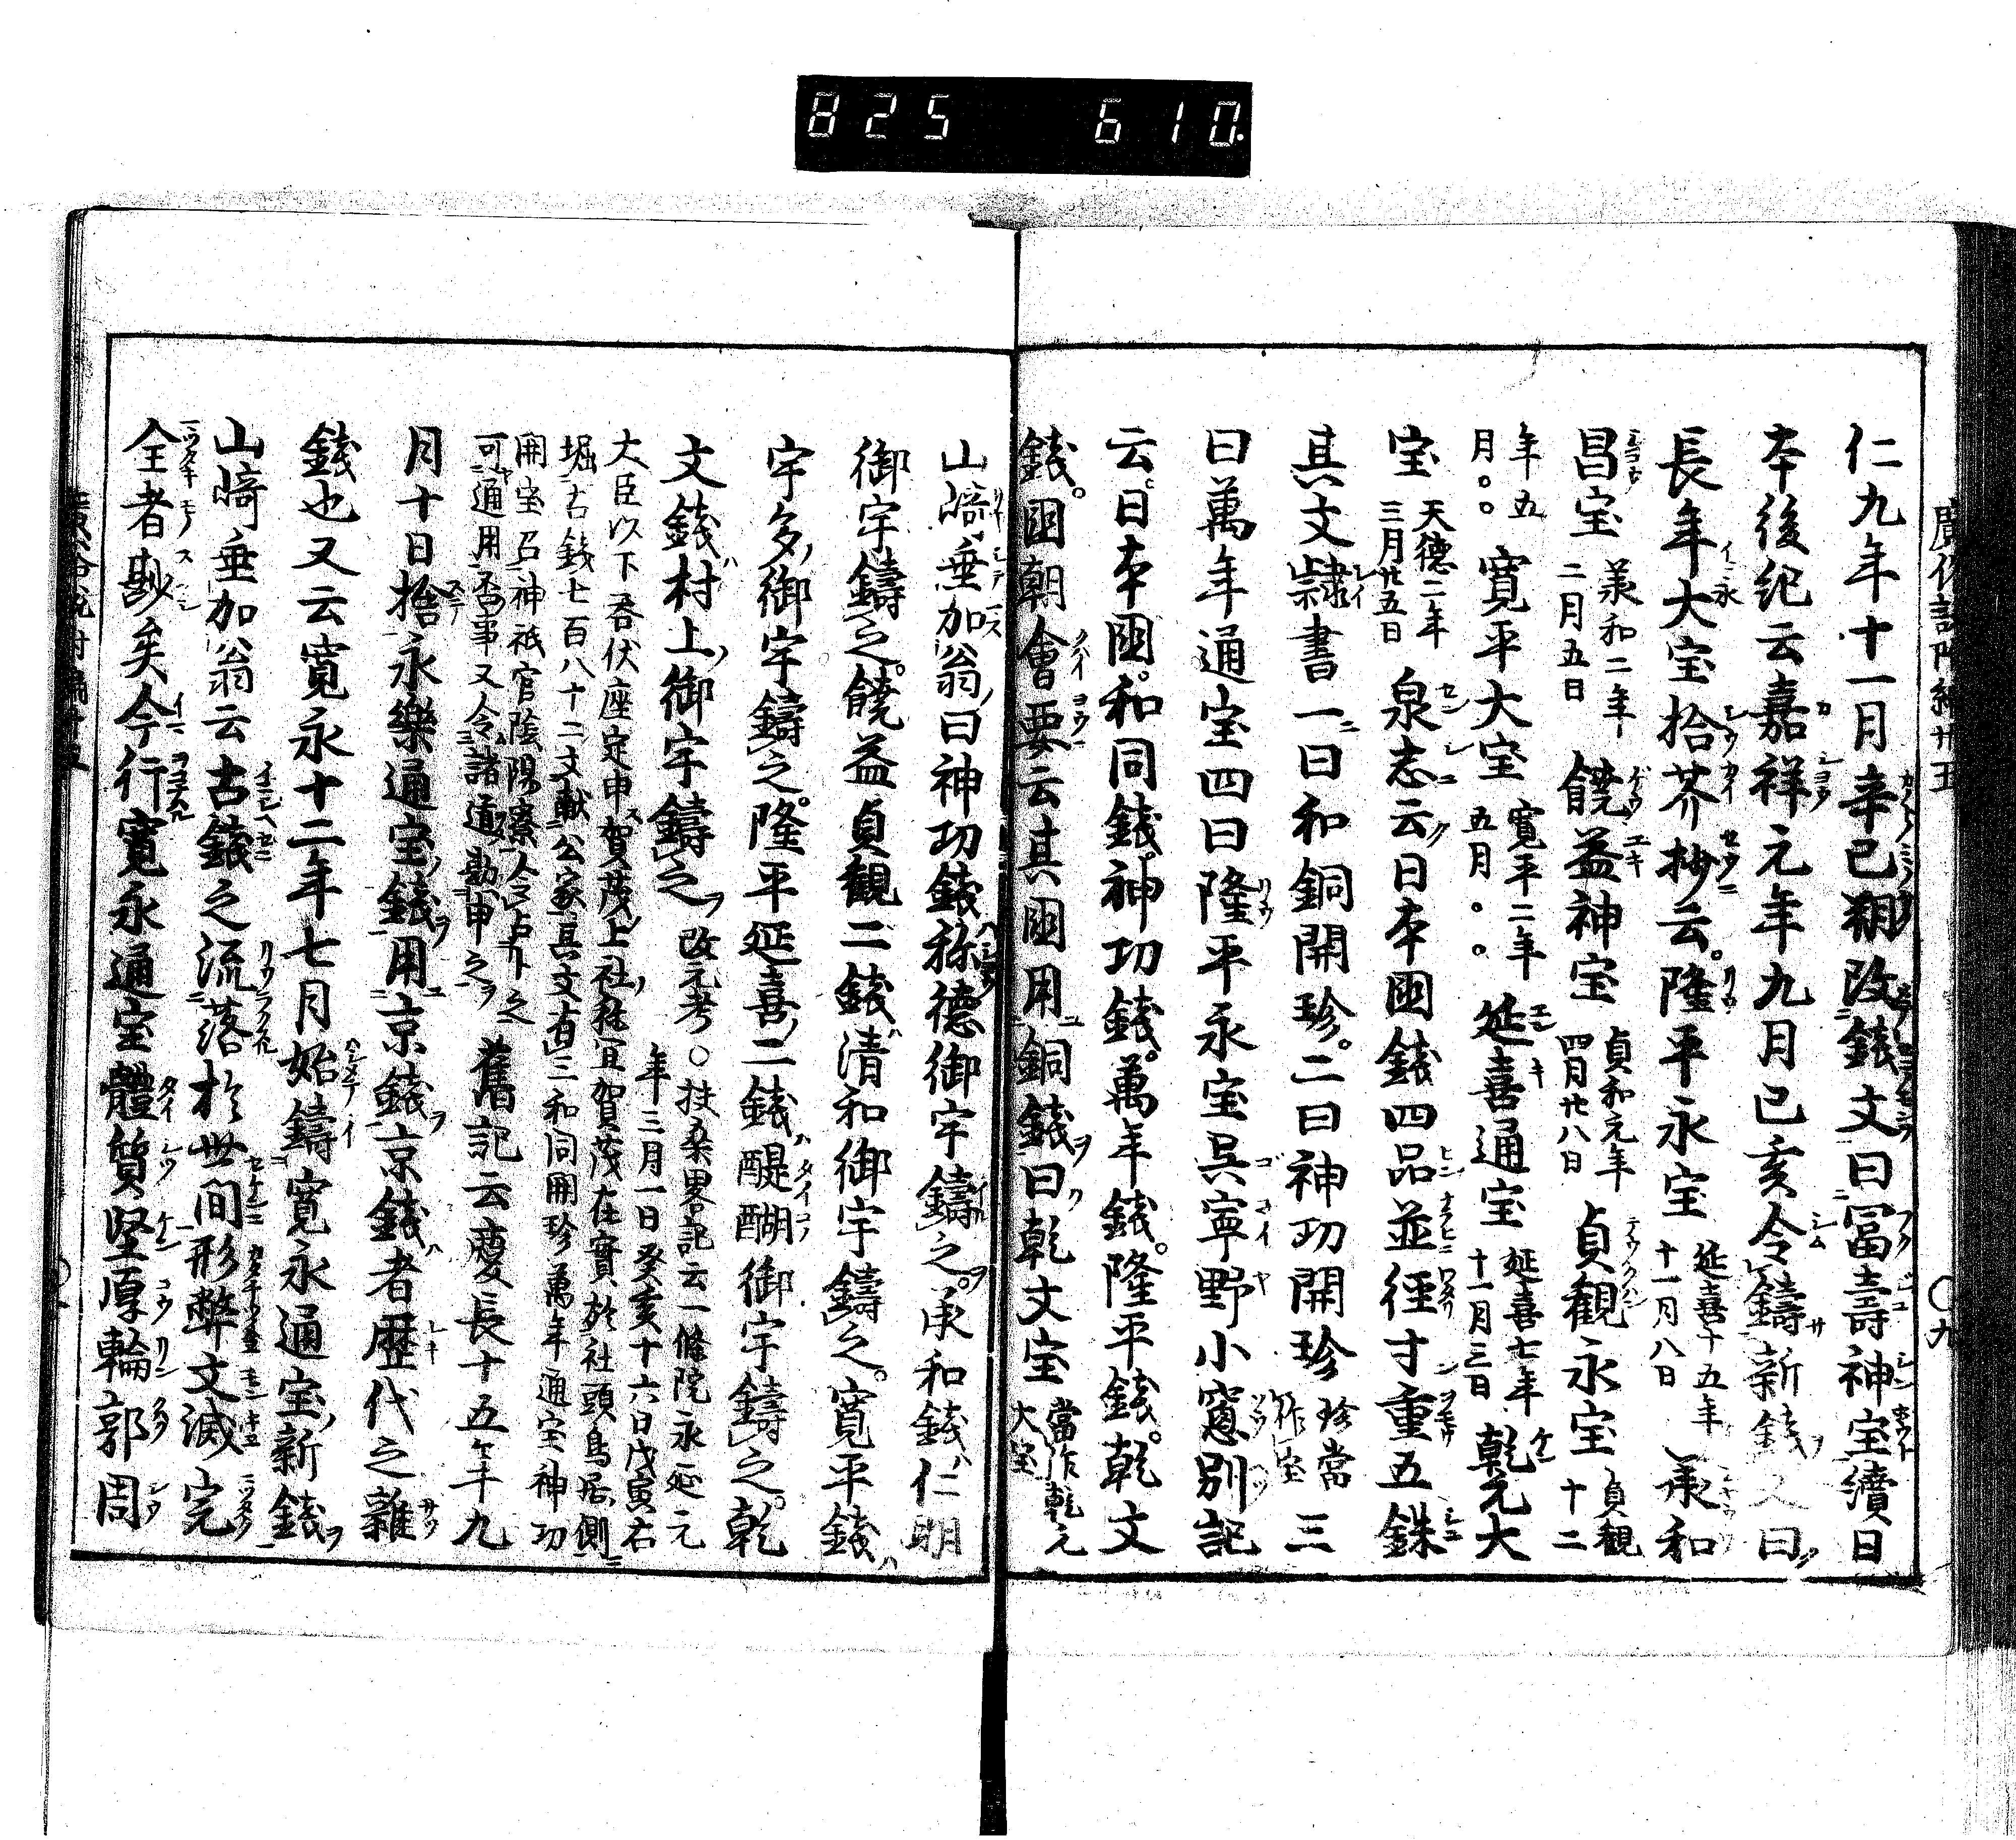 825 610
仁九年十一月辛巳朔改錢文曰冨壽神宝續日
夲後紀云嘉祥元年九月己亥令鑄新錢文曰
長年大宝拾芥抄云隆平永宝 延喜十五年十一月八日 羕和
昌宝 羕和二年二月五日 饒益神宝 貞和元年四月廿八日 貞觀永宝 貞觀十二
年五月。。 寛平大宝 寛平二年五月。。 延喜通宝 延喜七年十一月三日 乾元大
宝 天德二年三月廿五日 泉志云日夲囯錢四品並徑寸重五銖
其文隷書一曰和銅開珍。二曰神功開珍 珍當作宝 三
曰萬年通宝四曰隆平永宝呉寧野小窻別記
云。日夲囯。和同錢。神功錢。萬年錢。隆平錢。乾文
錢。囯朝會要云其囯用銅錢曰乾文宝 當作乾元大宝
山﨑垂加翁曰神功錢称德御宇鑄之。承和錢仁明
御宇鑄之。饒益貞觀二錢清和御宇鑄之。寛平錢
宇多御宇鑄之。隆平延喜二錢醍醐御宇鑄之。乾
文錢村上御宇鑄之 改元考〇扶桑畧記云一條院永延元年三月一日癸亥十六日戊寅右
大臣以下着伏座定申賀茂上社祢宜賀茂在實於社頭鳥居側
堀古錢七百八十二文献公家其文有三和同開珍萬年通宝神功
開宝召神祇官陰陽寮令占卜之
可通用否事又令諸道勘申之 舊記云慶長十五年九
月十日捨永樂通宝錢用京錢京錢者歴代之雜
錢也又云寛永十二年七月始鑄寛永通宝新錢
山﨑垂加翁云古錢之流落於世間形弊文滅完
全者尠矣今行寛永通宝體質堅厚輪郭周